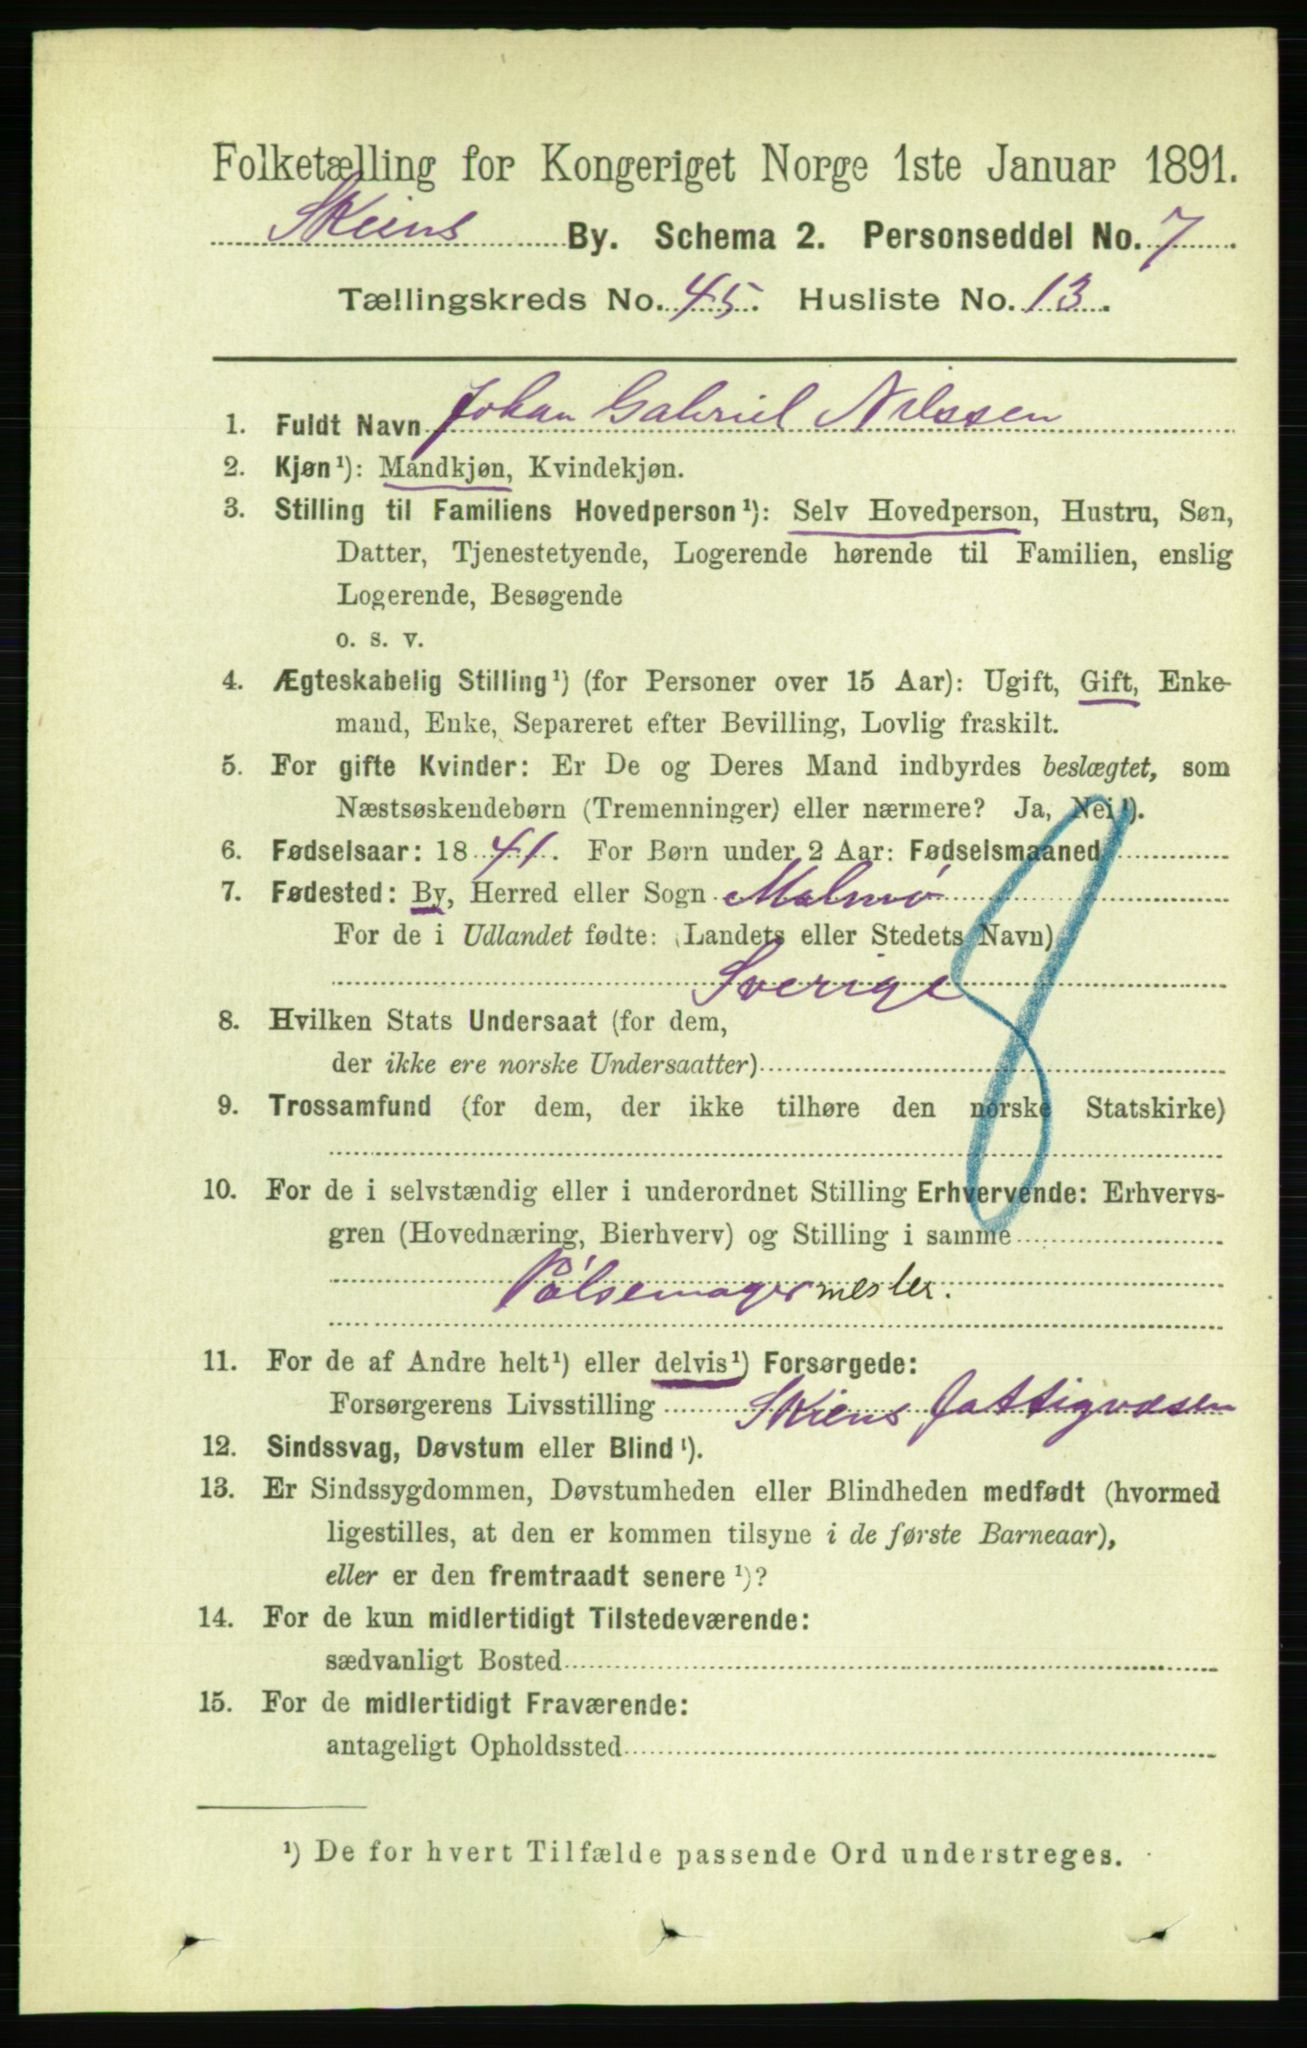 Folketælling for Kongeriget Norge 1ste Januar 1891.
Skiens By. Schema 2. Personseddel No. 7
Tællingskreds No. 45. Husliste No. 13.
1. Fuldt Navn Johan Gabriel Nilssen
2. Kjøn¹): Mandkjøn, Kvindekjøn.
3. Stilling til Familiens Hovedperson¹): Selv Hovedperson, Hustru, Søn,
Datter, Tjenestetyende, Logerende hørende til Familien, enslig
Logerende, Besøgende
o. s. v.
4. Ægteskabelig Stilling¹) (for Personer over 15 Aar): Ugift, Gift, Enke-
mand, Enke, Separeret efter Bevilling, Lovlig fraskilt.
5. For gifte Kvinder: Er De og Deres Mand indbyrdes beslægtet, som
Næstsøskendebørn (Tremenninger) eller nærmere? Ja, Nei¹).
6. Fødselsaar: 1841. For Børn under 2 Aar: Fødselsmaaned
7. Fødested: By, Herred eller Sogn Malmö
For de i Udlandet fødte: (Landets eller Stedets Navn)
Sverige
8. Hvilken Stats Undersaat (for dem,
der ikke ere norske Undersaatter)
9. Trossamfund (for dem, der ikke tilhøre den norske Statskirke)
10. For de i selvstændig eller i underordnet Stilling Erhvervende: Erhvervs-
gren (Hovednæring, Bierhverv) og Stilling i samme
Pölsemagermester.
11. For de af Andre helt¹) eller delvis¹) Forsørgede:
Forsørgerens Livsstilling Skiens Fattigvæsen
12. Sindssvag, Døvstum eller Blind¹).
13. Er Sindssygdommen, Døvstumheden eller Blindheden medfødt (hvormed
ligestilles, at den er kommen tilsyne i de første Barneaar),
eller er den fremtraadt senere¹)?
14. For de kun midlertidigt Tilstedeværende:
sædvanligt Bosted
15. For de midlertidigt Fraværende:
antageligt Opholdssted
¹) De for hvert Tilfælde passende Ord understreges.